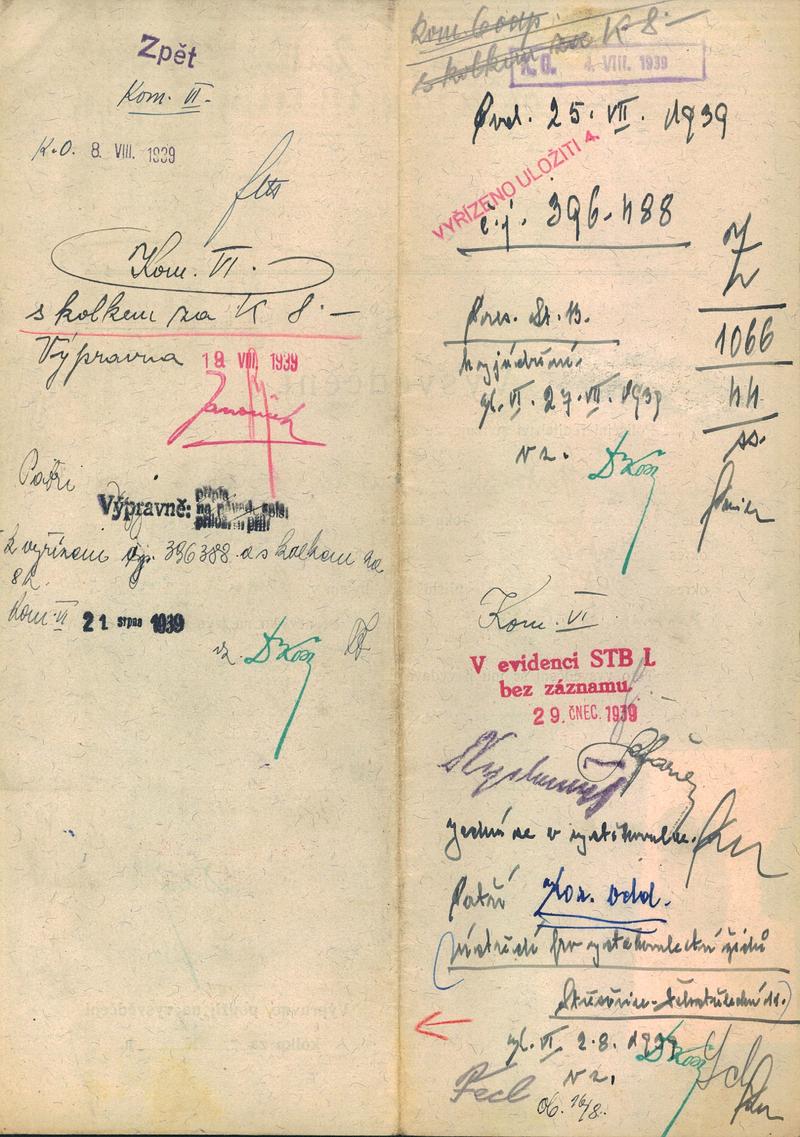 Zpět
Kom. VI.
K.O. 8. VIII. 1939
Kom. VI.
s kolkem za K 8.–
Výpravna 19. VIII. 1939
Patří
Výpravně:
k vyřízení čj. 396388 a s kolkem za
8 K.
Kom. VI 21. srpna 1939
vz.
s kolkem za K 8.–
K.O. 4. VIII. 1939
Pod. 25. VII. 1939
VYŘÍZENO ULOŽITI 4.
č.j. 396.488
Pres. St. B.
k vyjádření.
gl. VI. 27. VII. 1939
v z.
1066
44
ss.
Kom. VI.
V evidenci STB I.
bez záznamu
29. ČNEC. 1939
Jedná se o vystěhovalce.
Patří odd.
Ústředí pro vystěhovalectví židů
Střešovice-Dělostřelecká 11.
gl. VI 2.8. 1939
v z.
Fecl